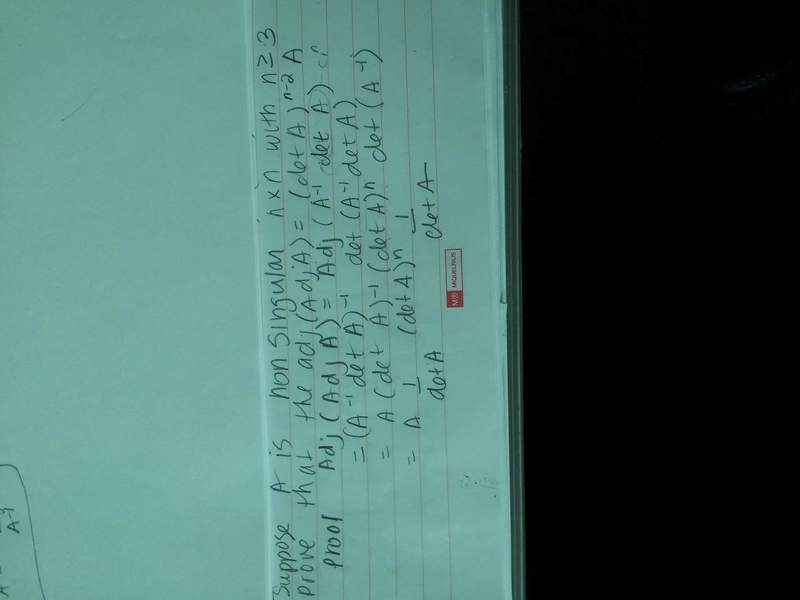 Suppose A is non singular n×n with n≥3
prove that the adj(AdjA) = (det A)ⁿ⁻² A
proof Adj (Adj A) = Adj (A⁻¹ det A)
= (A⁻¹ det A)⁻¹ det (A⁻¹ det A)
= A (det A)⁻¹ (det A)ⁿ det (A⁻¹)
= A 1/det A (det A)ⁿ 1/det A
MIQUELRIUS
A-1